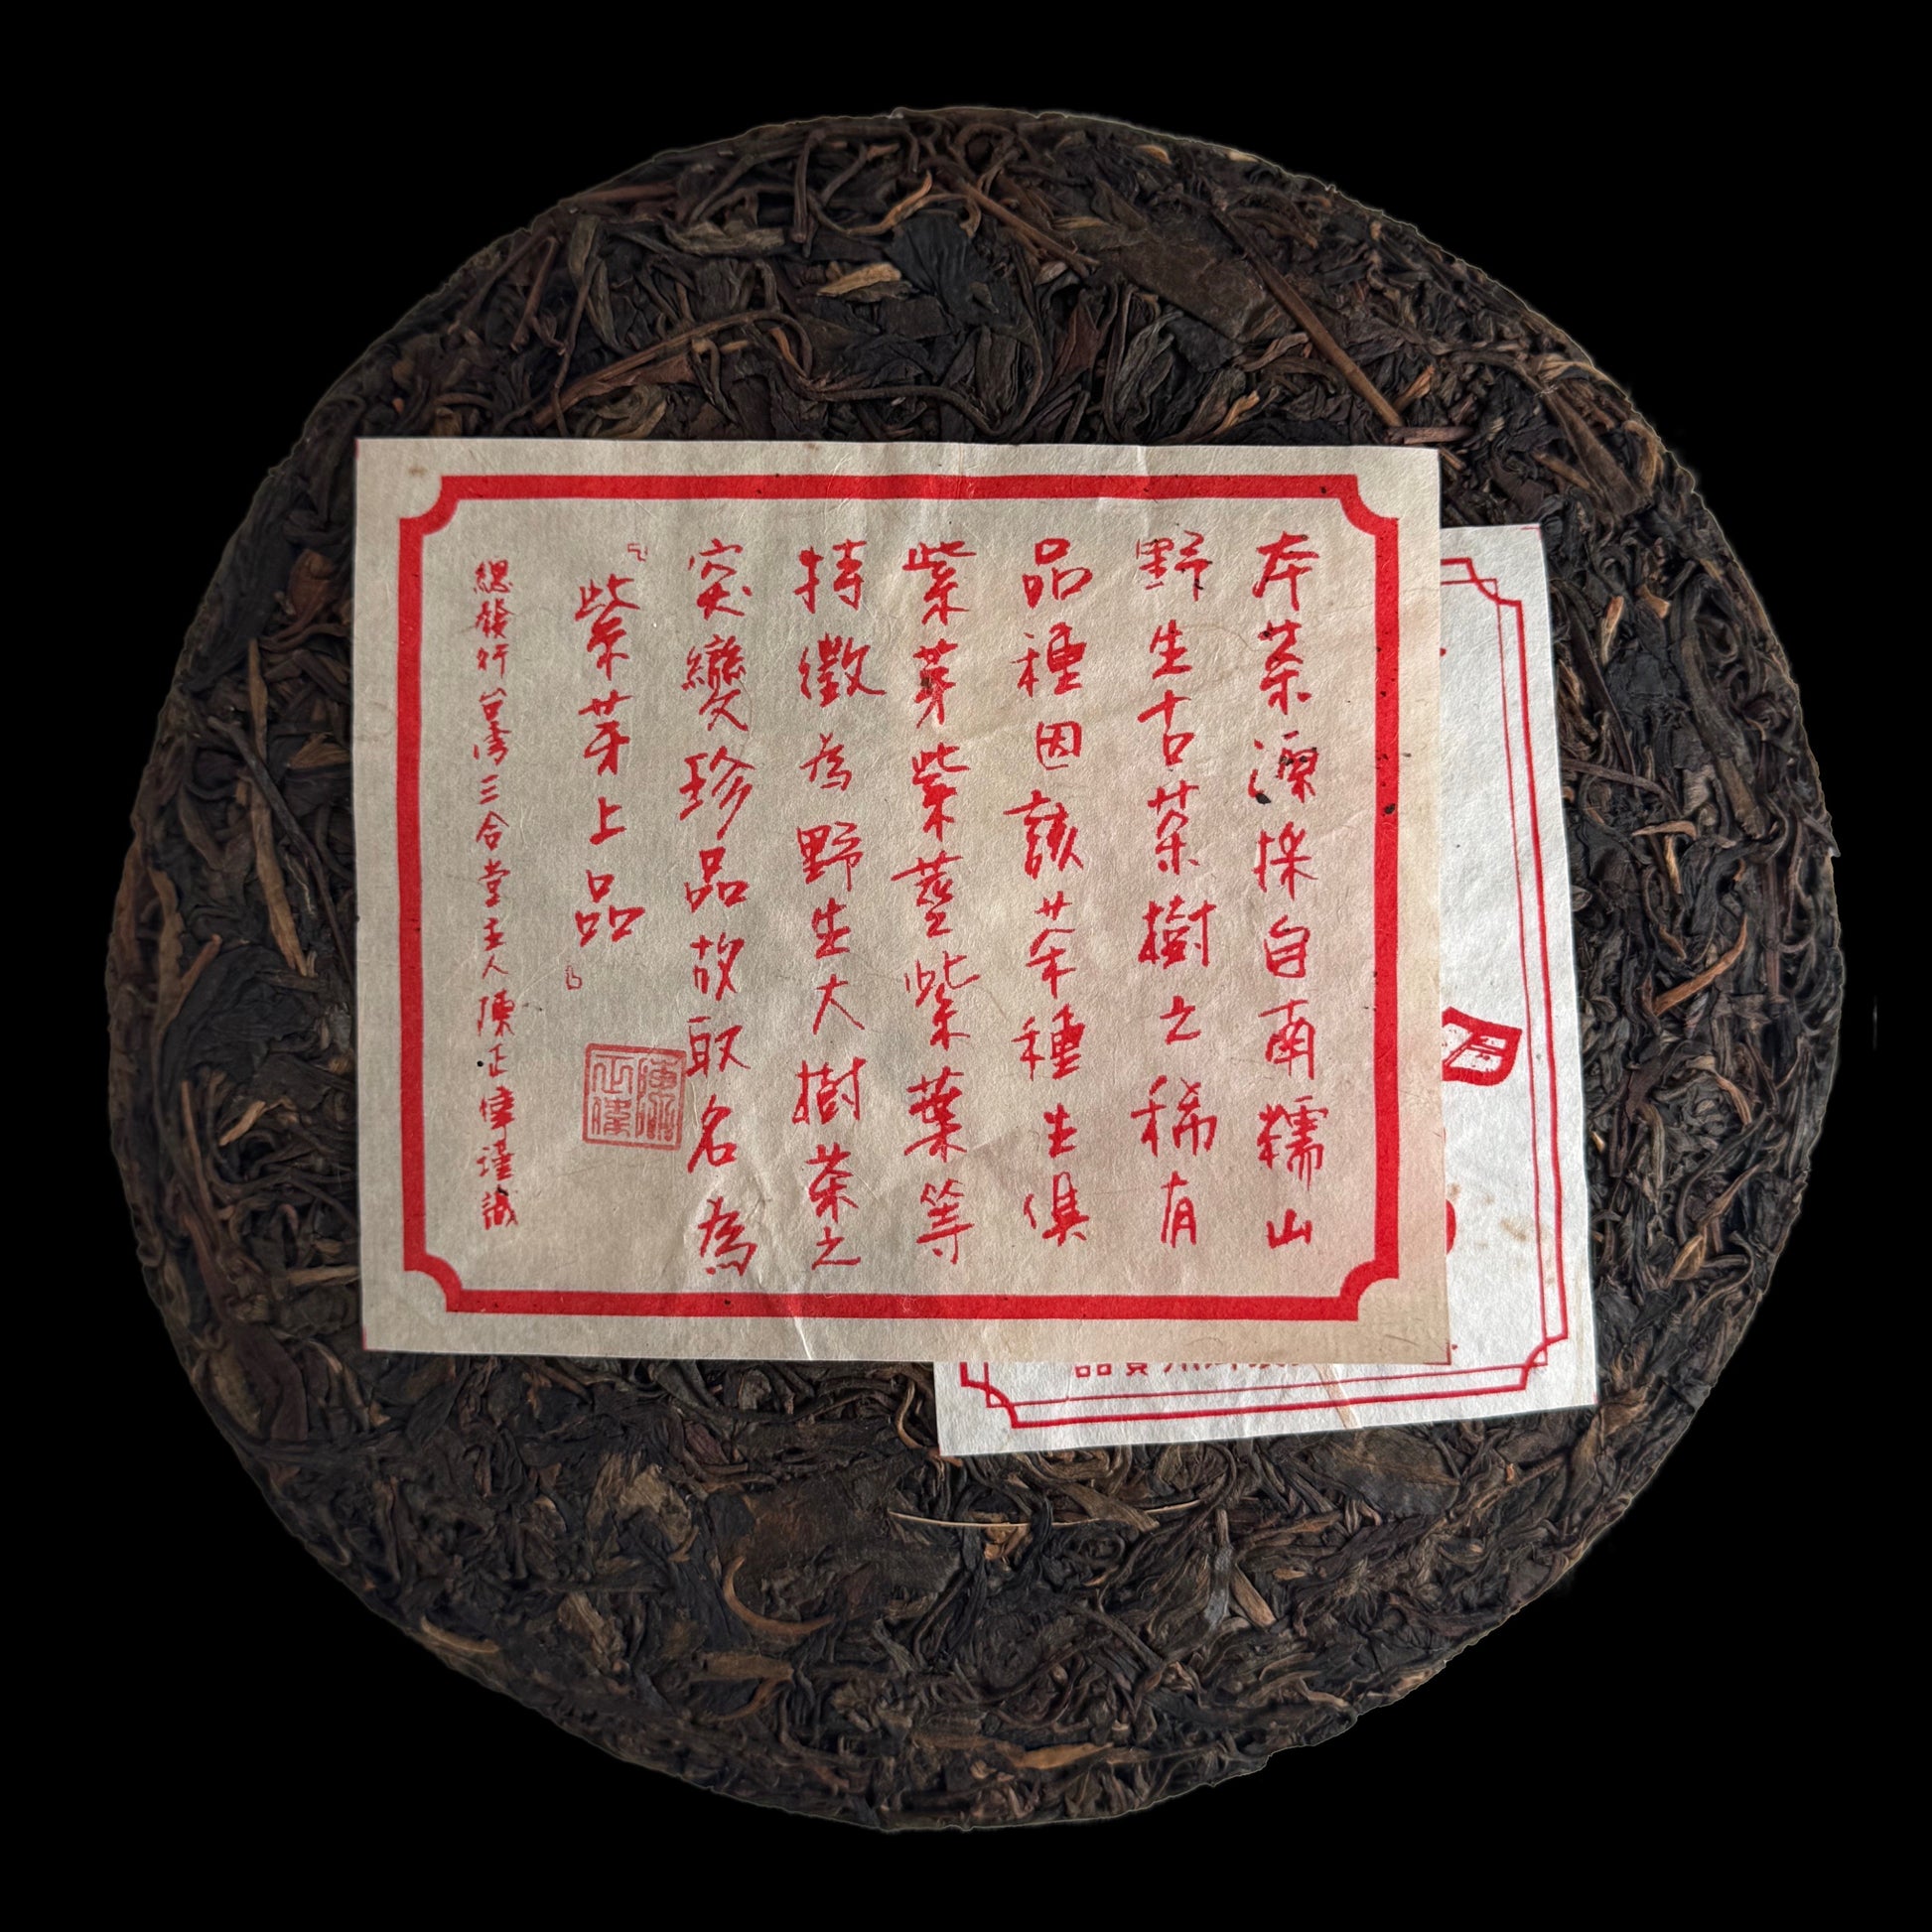 本茶源採自南糯山
野生古茶樹之稀有
品種因該茶種生俱
紫芽紫莖紫葉等
特徵為野生大樹茶之
突變珍品故取名為
『紫芽上品』
總發行台灣三合堂主人陳正偉謹誠
月
品寶